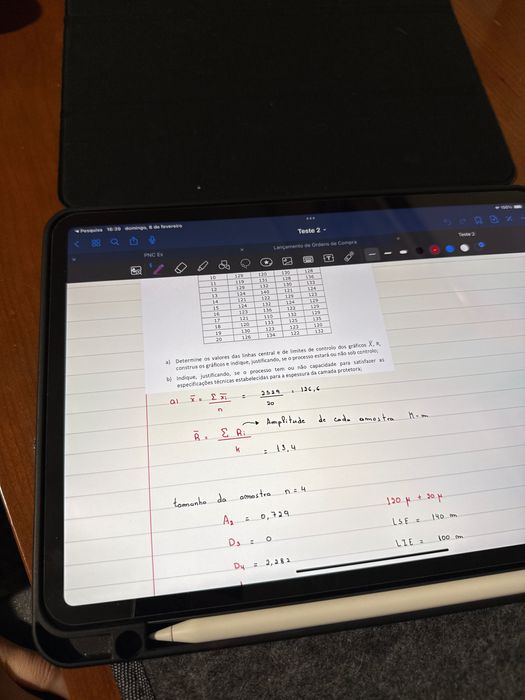 Pesquisa 16:39 domingo, 8 de fevereiro
100%
Teste 2
PNC Ex
Lançamento de Ordens de Compra
Teste 2
10 129 120 130 128
11 119 131 128 136
12 129 132 130 122
13 124 140 121 124
14 121 122 129 123
15 124 132 124 129
16 123 136 132 129
17 121 110 132 129
18 120 133 125 135
19 130 123 123 120
20 126 134 122 132
a) Determine os valores das linhas central e de limites de controlo dos gráficos X̄, R,
construa os gráficos e indique, justificando, se o processo estará ou não sob controlo;
b) Indique, justificando, se o processo tem ou não capacidade para satisfazer as
especificações técnicas estabelecidas para a espessura da camada protetora;
a) x̄ = Σ xi / n = 2529 / 20 = 126,6
R̄ = Σ Ri / k → Amplitude de cada amostra
= 13,4
tamanho da amostra n = 4
A2 = 0,729
D3 = 0
D4 = 2,282
120 μ ± 20 μ
LSE = 140 m
LIE = 100 m